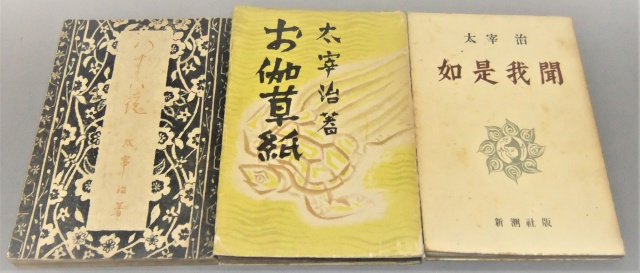 太宰治著
太宰治著
お伽草紙
太宰治
如是我聞
新潮社版